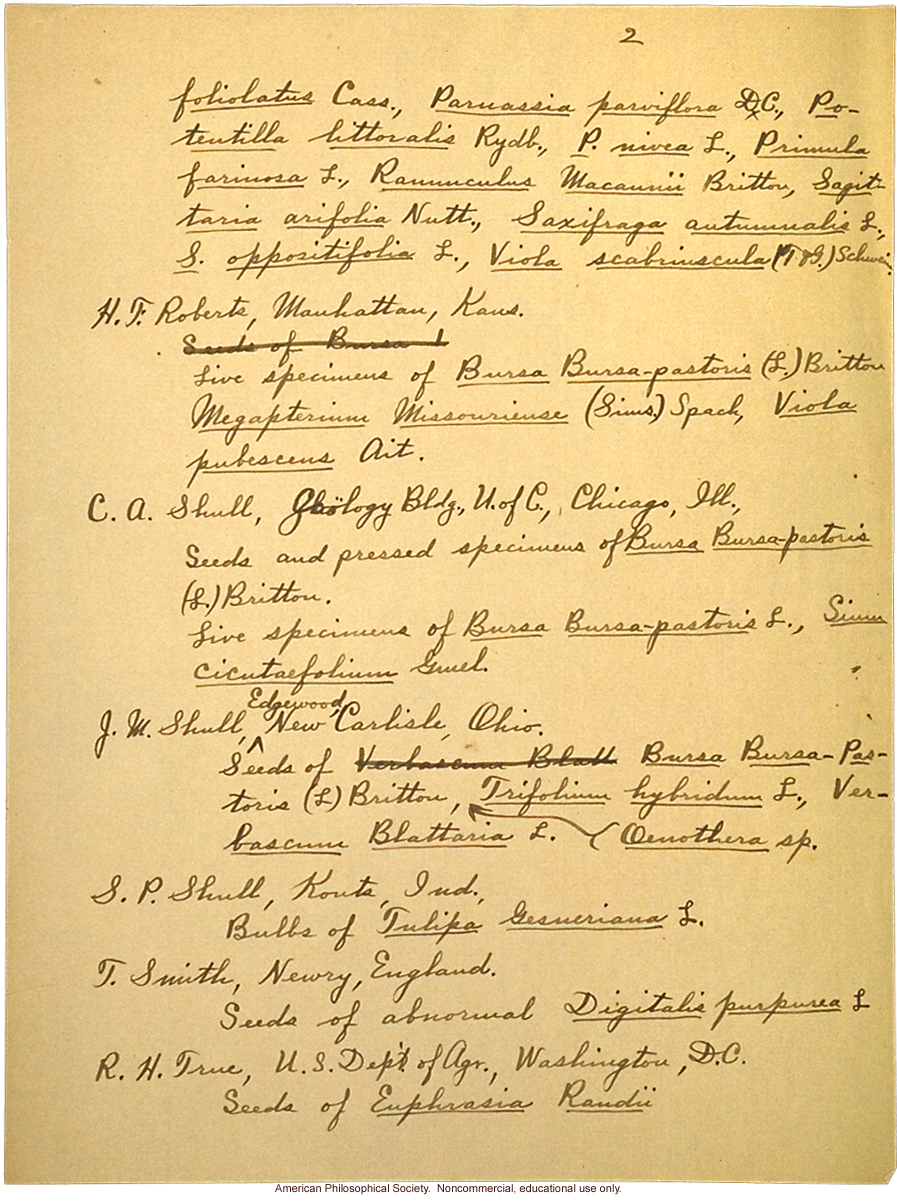 2
foliolatus Cass., Parnassia parviflora D.C., Po-
tentilla littoralis Rydb., P. nivea L., Primula
farinosa L., Ranunculus Macaunii Britton, Sagit-
taria arifolia Nutt., Saxifraga autumnalis L.,
S. oppositifolia L., Viola scabriuscula (T & G.) Schwein.
H. F. Roberts, Manhattan, Kans.
Seeds of Bursa
Live specimens of Bursa Bursa-pastoris (L.) Britton
Megapterium Missouriense (Sims,) Spach, Viola
pubescens Ait.
C. A. Shull, Geology Bldg., U. of C., Chicago, Ill.,
Seeds and pressed specimens of Bursa Bursa-pastoris
(L.) Britton.
Live specimens of Bursa Bursa-pastoris L., Sium
cicutaefolium Gmel.
Edgewood,
J. M. Shull, New Carlisle, Ohio.
Seeds of Verbascum Blatt Bursa Bursa-Pas-
toris (L) Britton, Trifolium hybridum L., Ver-
bascum Blattaria L. Oenothera sp.
S. P. Shull, Kouts, Ind.,
Bulbs of Tulipa Gesneriana L.
T. Smith, Newry, England.
Seeds of abnormal Digitalis purpurea L
R. H. True, U. S. Dep't. of Agr., Washington, D.C.
Seeds of Euphrasia Randii
American Philosophical Society. Noncommercial, educational use only.